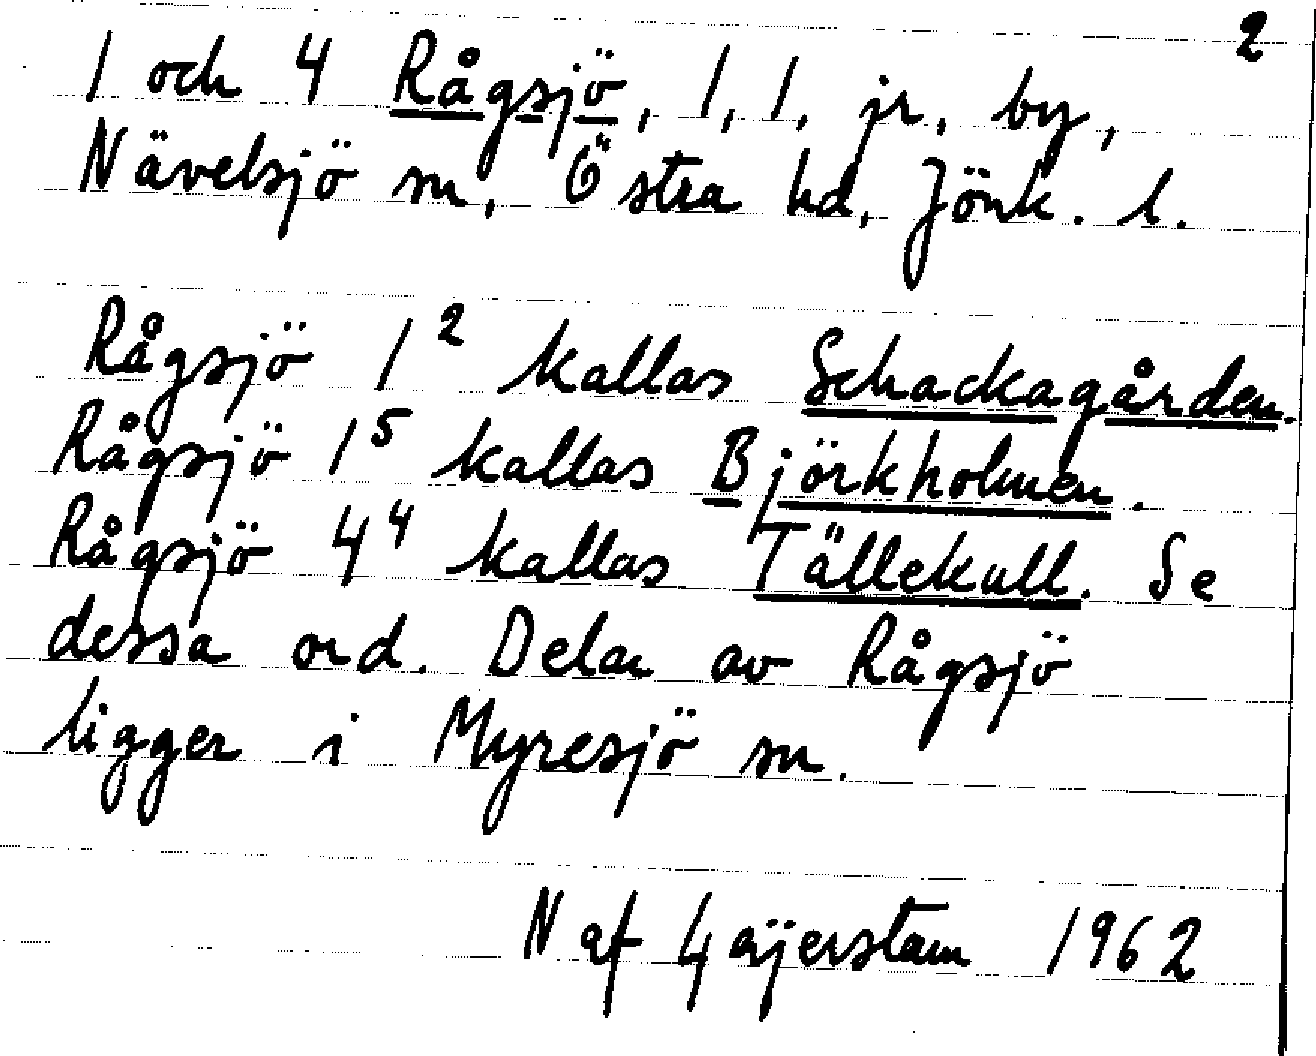 2
1 och 4 Rågsjö, 1, 1, jr, by,
Nävelsjö sn, Östra hd, Jönk. l.
Rågsjö 1² kallas Schackagården.
Rågsjö 1⁵ kallas Björkholmen.
Rågsjö 4⁴ kallas Tällekull. Se
dessa ord. Delar av Rågsjö
ligger i Myresjö sn.
N af Geijerstam 1962